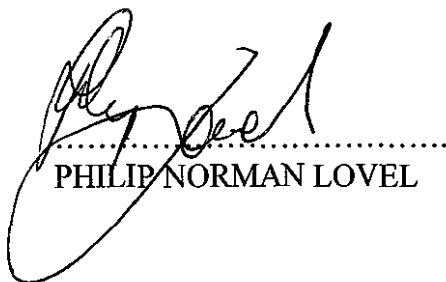 PHILIP NORMAN LOVEL